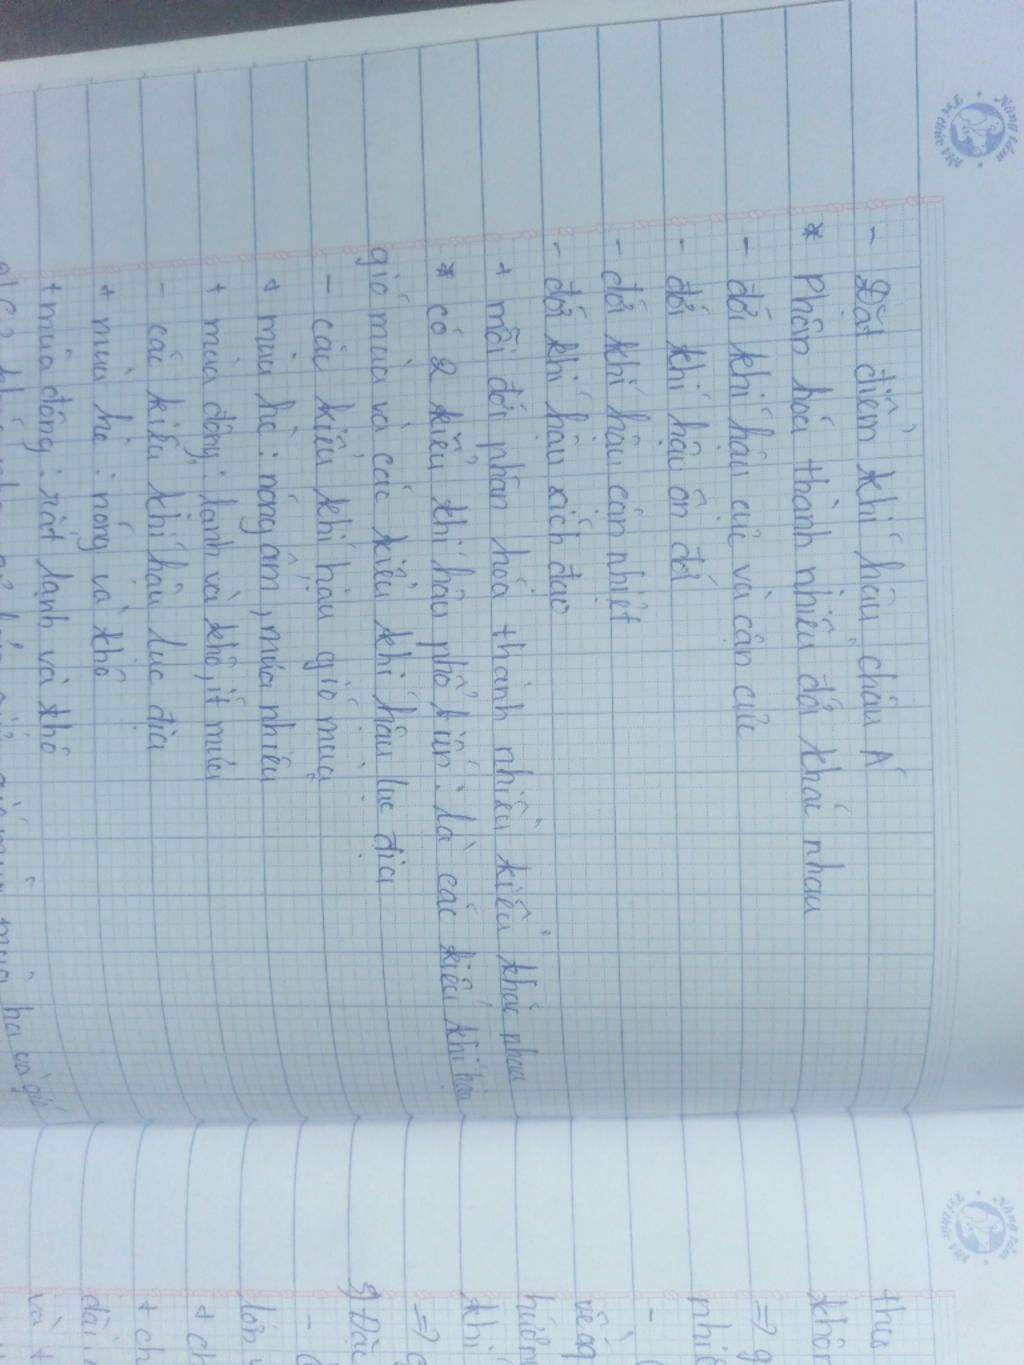 Nâng tầm
Tri thức Việt
- Đặt điểm khí hậu châu Á
* Phân hoá thành nhiều đới khác nhau
- đới khí hậu cực và cận cực
- đới khí hậu ôn đới
- đới khí hậu cận nhiệt
- đới khí hậu xích đạo
+ mỗi đới phân hóa thành nhiều kiểu khác nhau
* có 2 kiểu khí hậu phổ biến: là các kiểu khí hậu
gió mùa và các kiểu khí hậu lục địa
- các kiểu khí hậu gió mùa
+ mùa hè: nóng ẩm, mưa nhiều
+ mùa đông: lạnh và khô, ít mưa
- các kiểu khí hậu lục địa
+ mùa hè: nóng và khô
+ mùa đông: rất lạnh và khô
gió mùa mùa hạ và gió
Nâng tầm
Tri thức Việt
theo
khôn
=> g
nhiề
-
về q
hướn
khí
=>
3) Đặc
-
lớn
+ ch
+ ch
dài
và t